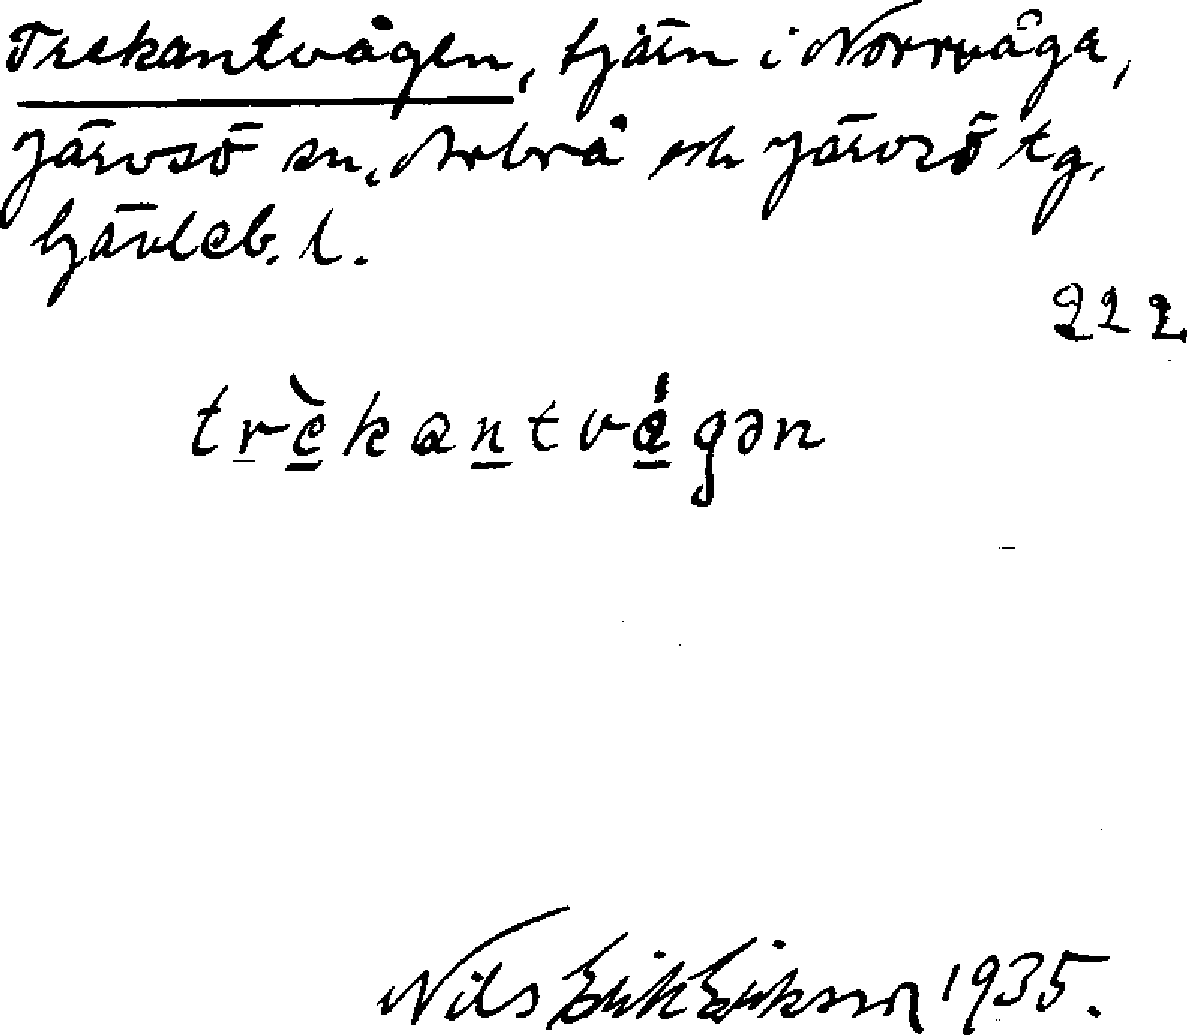 Trekantvågen, tjärn i Norrvåga,
Järvsö sn, Arbrå och Järvsö tg,
Gävleb. l.
222
trèkantvågən
Nils Erik Eriksson 1935.